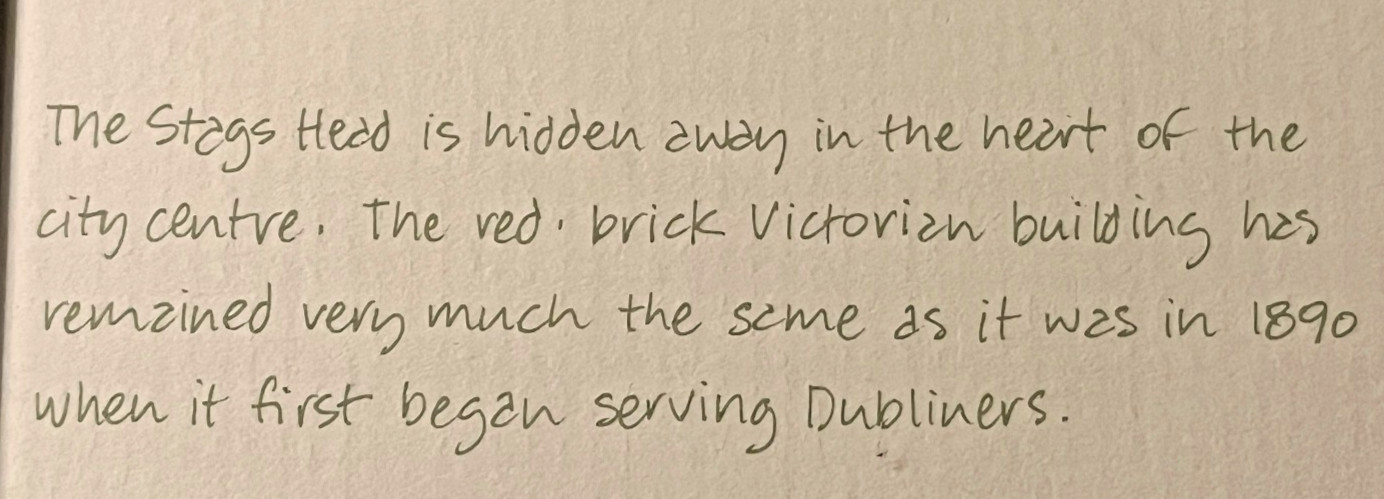 The Stags Head is hidden away in the heart of the
city centre. The red. brick Victorian building has
remained very much the same as it was in 1890
when it first began serving Dubliners.